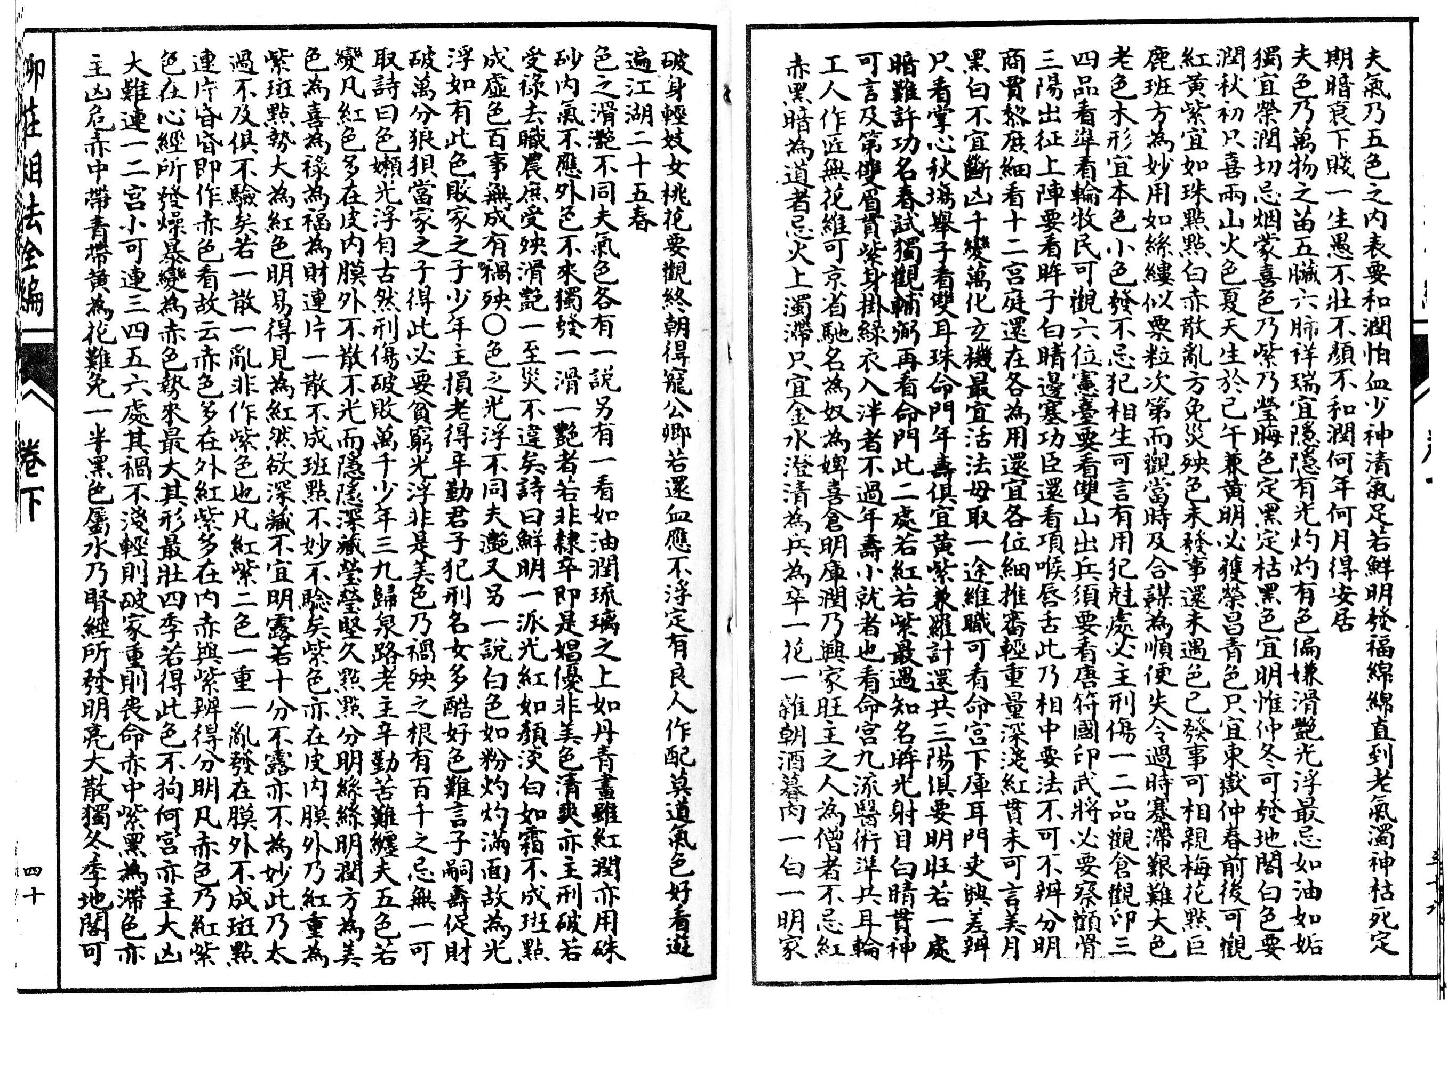 夫氣乃五色之內表要和潤怕血少神清氣足若鮮明發福綿綿直到老氣濁神枯死定
期暗哀下賤一生愚不壯不顏不和潤何年何月得安居
夫色乃萬物之苗五臟六腑祥瑞宜隱隱有光灼灼有色偏嫌滑艷光浮最忌如油如垢
獨宜榮潤切忌烟蒙喜色乃紫乃瑩晦色定黑定枯黑色宜明惟仲冬可發地閣白色要
潤秋初只喜兩山火色夏天生於己午兼黃明必獲榮昌青色只宜東嶽仲春前後可觀
紅黃紫宜如珠點點白赤散亂方免災殃色未發事還未遇色已發事可相親梅花點巨
鹿班方為妙用如絲縷似粟粒次第而觀當時及合謀為順便失令過時蹇滯艱難大色
老色木形宜本色小色發不忌犯相生可言有用犯尅處必主刑傷一二品觀倉觀印三
四品看準看輪牧民可觀六位憲臺要看雙山出兵須要看唐符國印武將必要察顴骨
三陽出征上陣要看眸子白睛邊塞功臣還看項喉唇舌此乃相中要法不可不辨分明
商賈黎庶細看十二宮庭還在各為用還宜各位細推審輕重量深淺紅貫未可言美月
黑白不宜斷凶千變萬化玄機最宜活法毋取一途維職可看命宮下庫耳門吏與差辨
只看掌心秋場舉子看雙耳珠命門年壽俱宜黃紫兼羅計還共三陽俱要明旺若一處
暗難許功名春試獨觀輔弼再看命門此二處若紅若紫最遇知名眸光射目白睛貫神
可言及第雙眉貫紫身掛綠衣入泮者不過年壽小就者也看命宮九流醫術準共耳輪
工人作匠無花維可京省馳名為奴為婢喜倉明庫潤乃興家旺主之人為僧者不忌紅
赤黑暗為道者忌火上濁滯只宜金水澄清為兵為卒一花一雜朝酒暮肉一白一明家
破身輕妓女桃花要觀終朝得寵公卿若還血應不浮定有良人作配莫道氣色好看遊
遍江湖二十五春
色之滑艷不同夫氣色各有一說另有一看如油潤琉璃之上如丹青畫雖紅潤亦用硃
砂內氣不應外色不來獨發一滑一艷者若非隸卒即是娼優非美色清爽亦主刑破若
受祿去職農庶受殃滑艷一至災不違矣詩曰鮮明一派光紅如顏淡白如霜不成班點
成虛色百事無成有禍殃〇色之光浮不同夫灧又另一說白色如粉灼灼滿面故為光
浮如有此色敗家之子少年主損老得平勤君子犯刑名女多酷好色難言子嗣壽促財
破萬分狼狽當家之子得此必要貧窮光浮非是美色乃禍殃之根有百千之忌無一可
取詩曰色嫩光浮自古然刑傷破敗萬千少年三九歸泉路老主辛勤苦難纏夫五色若
變凡紅色多在皮內膜外不散不光而隱隱深藏瑩瑩堅久點點分明絲絲明潤方為美
色為喜為祿為福為財連片一散不成班點不妙不騐矣紫色亦在皮內膜外乃紅重為
紫班點勢大為紅色明易得見為紅然欲深藏不宜明露若十分不露亦不為妙此乃太
過不及俱不驗矣若一散一亂非作紫色也凡紅紫二色一重一亂發在膜外不成斑點
連片昏昏即作赤色看故云赤色多在外紅紫多在內赤與紫辨得分明凡赤色乃紅紫
色在心經所發燥暴變為赤色勢來最大其形最壯四季若得此色不拘何宮亦主大凶
大難連一二宮小可連三四五六處其禍不淺輕則破家重則畏命赤中紫黑為滯色亦
主凶危赤中帶青帶黃為花難免一半黑色屬水乃腎經所發明亮大散獨冬季地閣可
柳莊相法全編
卷下
四十